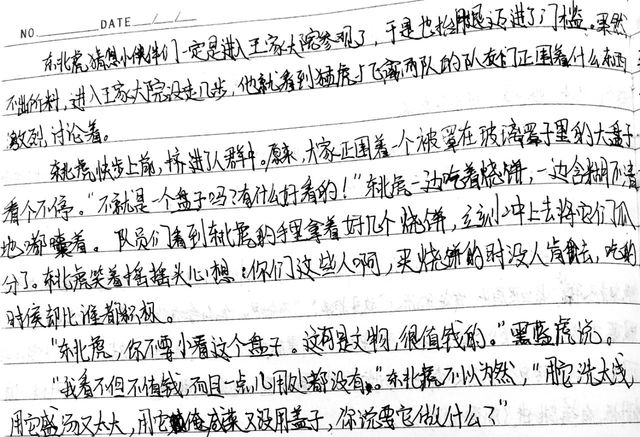 NO. DATE / /
东北虎猜想小伙伴们一定是进入王家大院参观了，于是也抬腿迈进了门槛。果然
不出所料，进入王家大院没走几步，他就看到猛虎、飞鹰两队的队友们正围着什么东西
激烈讨论着。
东北虎快步上前，挤进人群中。原来，大家正围着一个被罩在玻璃罩子里的大盘子
看个不停。“不就是一个盘子吗？有什么好看的！”东北虎一边吃着烧饼，一边含糊不清
地嘟囔着。队员们看到东北虎的手里拿着好几个烧饼，立刻冲上去将它们瓜
分了。东北虎笑着摇摇头心想：你们这些人啊，买烧饼的时没人肯去，吃的
时侯却比谁都积极。
“东北虎，你不要小看这个盘子。这可是文物，很值钱的。”黑蓝虎说。
“我看不但不值钱，而且一点儿用处都没有。”东北虎不以为然，“用它洗太浅，
用它盛汤又太大，用它盛菜又没用盖子，你说要它做什么？”